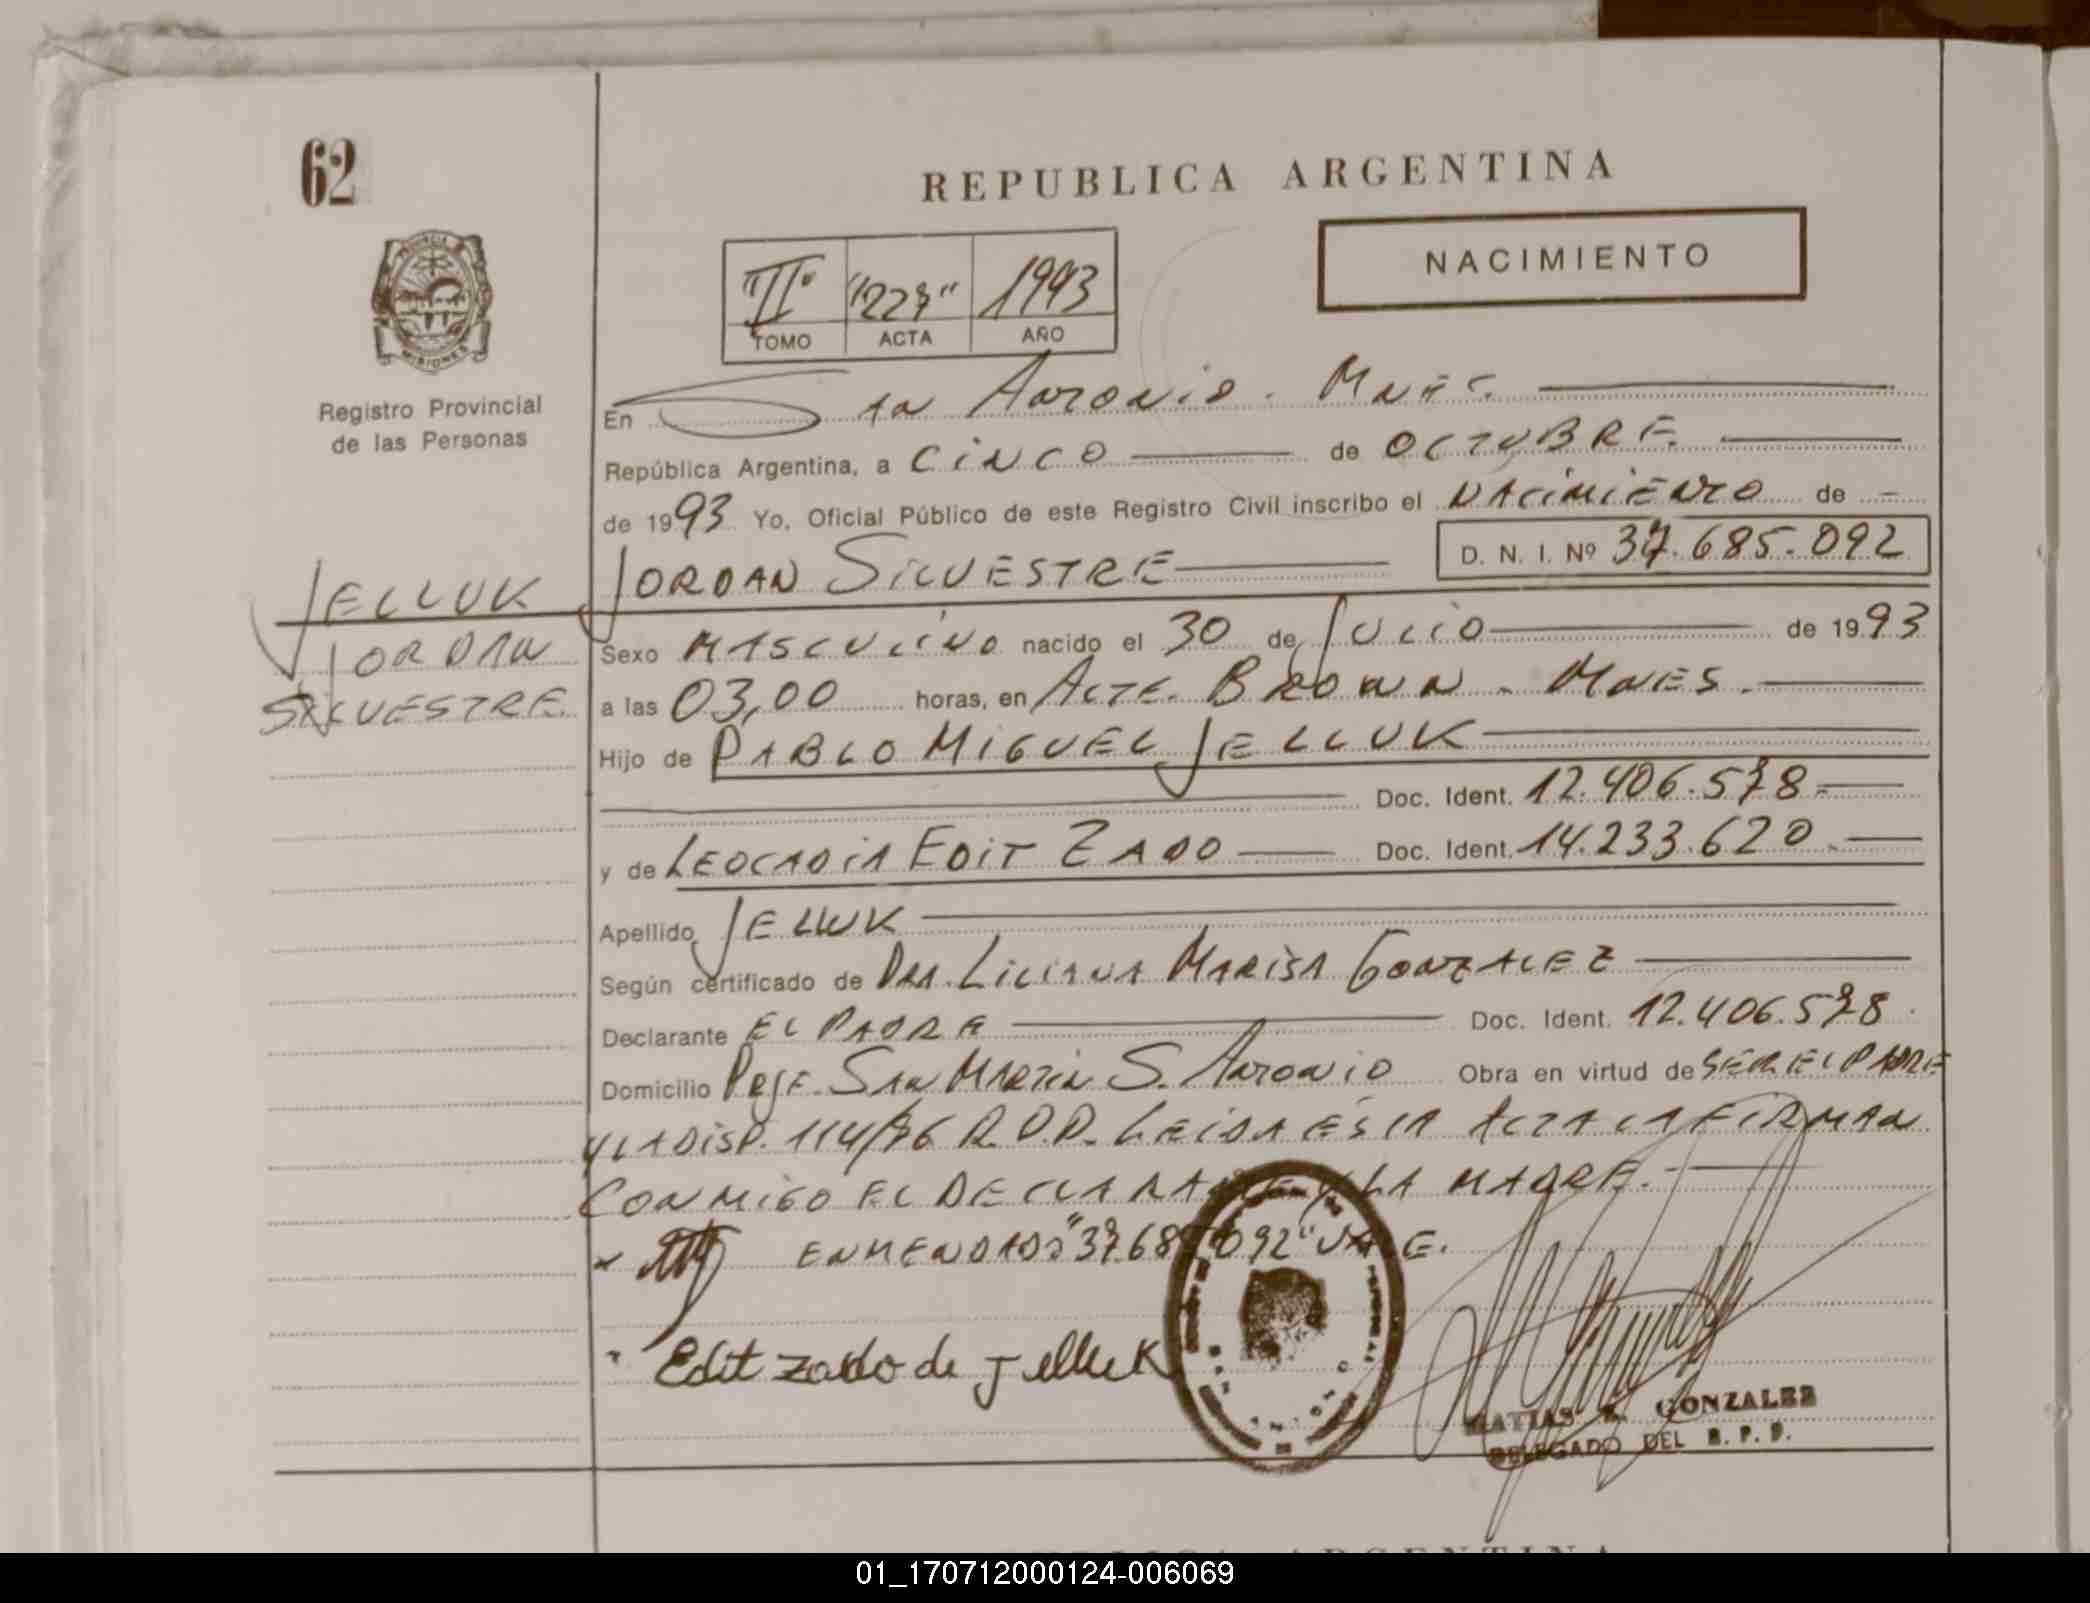 62
REPUBLICA ARGENTINA
NACIMIENTO
"II" "227" 1993
TOMO ACTA AÑO
MISIONES
Registro Provincial
de las Personas
En San Antonio - Mnes.
República Argentina, a CINCO de OCTUBRE
de 1993 Yo, Oficial Público de este Registro Civil inscribo el NACIMIENTO de -
JORDAN SILVESTRE D. N. I. Nº 37.685.092
JELLUK
JORDAN
SILVESTRE
Sexo MASCULINO nacido el 30 de JULIO de 1993
a las 03,00 horas, en ALTE. BROWN - MNES.
Hijo de PABLO MIGUEL JELLUK
Doc. Ident. 12.406.578.-
y de LEOCADIA EDIT ZADO Doc. Ident. 14.233.620.-
Apellido JELLUK
Según certificado de DRA. LILIANA MARISA GONZALEZ
Declarante EL PADRE Doc. Ident. 12.406.578
Domicilio PRJE. SAN MARTIN S. ANTONIO Obra en virtud de SER EL PADRE
Y LA DISP. 114/76 R.D.P. LEIDA ESTA ACTA LA FIRMAN
CONMIGO EL DECLARANTE Y LA MADRE.-
ENMENDADO "37.685.092" VALE.
Edit zado de Jelluk
MATIAS GONZALEZ
DELEGADO DEL R. P. P.
REPUBLICA ARGENTINA
01_170712000124-006069